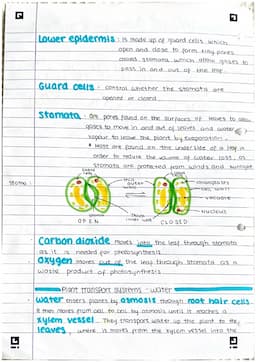 Lower epidermis : is made up of guard cells which
open and close to form tiny pores
called stomata, which allow gases to
pass in and out of the leaf
Guard cells : control whether the stomata are
opened or closed
Stomata : are pores found on the surfaces of leaves to allow
gases to move in and out of leaves and water
vapour to leave the plant by evaporation.
Most are found on the underside of a leaf in
order to reduce the volume of water lost, as
stomata are protected from winds and sunlight
cell wall
vacuole
nucleus
OPEN
CLOSED
Carbon dioxide moves into the leaf through stomata
as it is needed for photosynthesis
Oxygen moves out of the leaf through stomata as a
waste product of photosynthesis
Plant transport systems - water
Water enters plants by osmosis through root hair cells.
It then moves from cell to cell by osmosis until it reaches a
xylem vessel. They transport water up the plant to the
leaves, where it moves from the xylem vessels into the